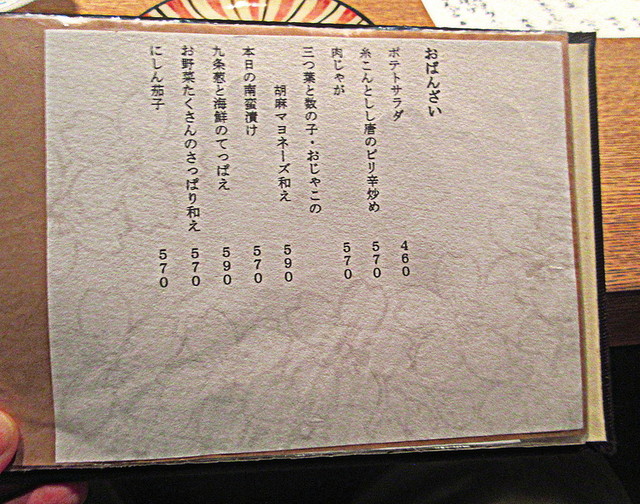 おばんざい
ポテトサラダ 460
糸こんとしし唐のピリ辛炒め 570
肉じゃが 570
三つ葉と数の子・おじゃこの
胡麻マヨネーズ和え 590
本日の南蛮漬け 570
九条葱と海鮮のてっぱえ 590
お野菜たくさんのさっぱり和え 570
にしん茄子 570